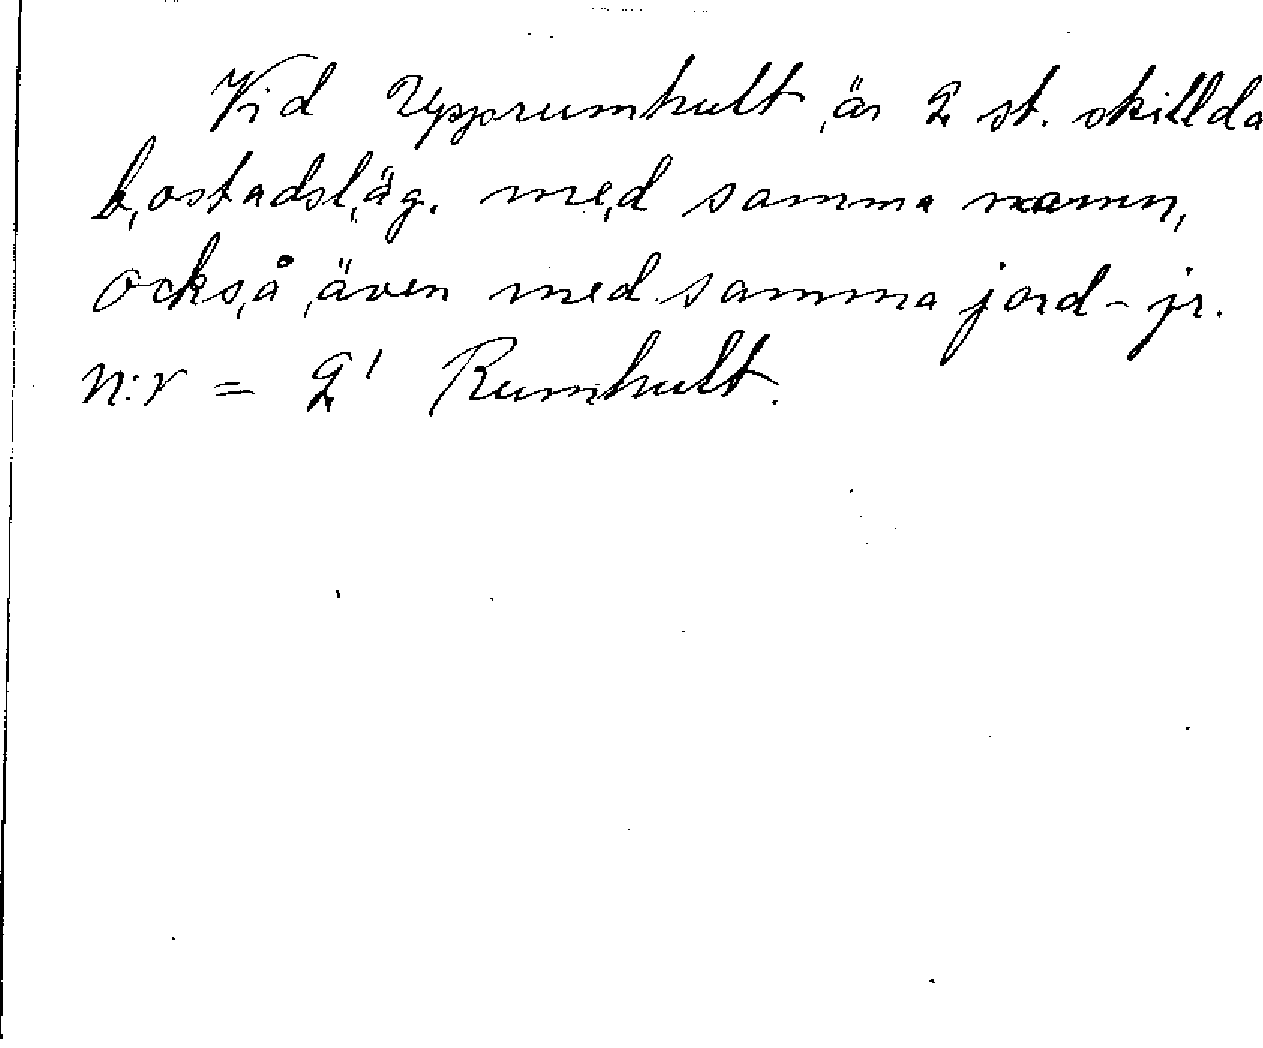 Vid Upprumhult är 2 st. skillda
bostadsläg. med samma namn,
också även med samma jord-jr.
n:r = 2¹ Rumhult.